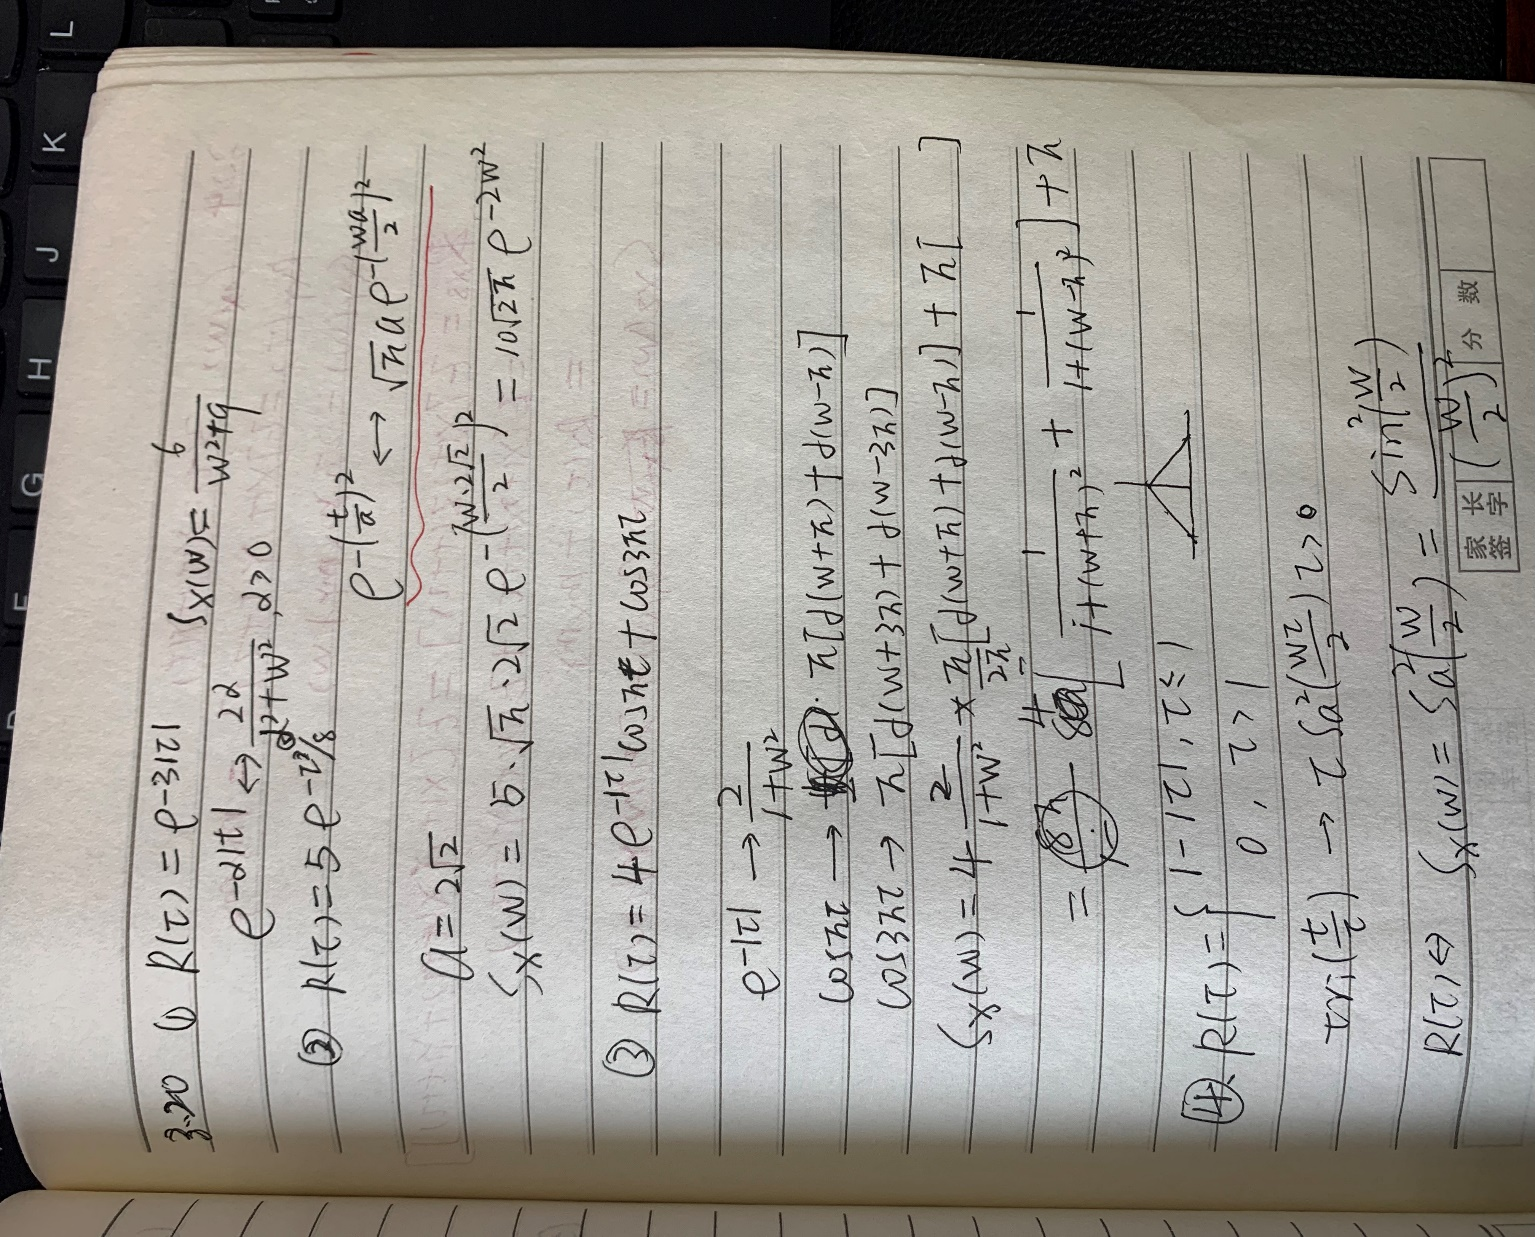 3.20 (1) R(τ) = e^{-3|τ|} S_X(w) = 6/(w²+9)
e^{-α|t|} ↔ 2α/(α²+w²), α>0
② R(τ) = 5e^{-τ²/8} e^{-(t/a)²} ↔ √π a e^{-(wa/2)²}
a = 2√2
S_X(w) = 5·√π·2√2 e^{-(w·2√2/2)²} = 10√2π e^{-2w²}
③ R(τ) = 4e^{-|τ|}cosπτ + cos3πτ
e^{-|τ|} → 2/(1+w²)
cosπτ → π[δ(w+π)+δ(w-π)]
cos3πτ → π[δ(w+3π)+δ(w-3π)]
S_X(w) = 4·2/(1+w²) * π[δ(w+π)+δ(w-π)]/2π + π[ ]
= 4[1/(1+(w+π)²) + 1/(1+(w-π)²)] + π
④ R(τ) = { 1-|τ|, τ≤1
0, τ>1
tri(t/τ) → τSa²(wτ/2) τ>0
R(τ) ↔ S_X(w) = Sa²(w/2) = sin²(w/2)/(w/2)²
家长签字
分数
L
K
J
H
G
F
D